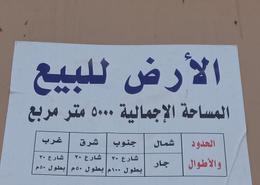 الأرض للبيع
المساحة الإجمالية ٥٠٠٠ متر مربع
الحدود والأطوال شمال جنوب شرق غرب
جار شارع ٢٠ بطول ١٠٠م شارع ٢٠ بطول ٥٠م شارع ٢٠ بطول ٥٠م